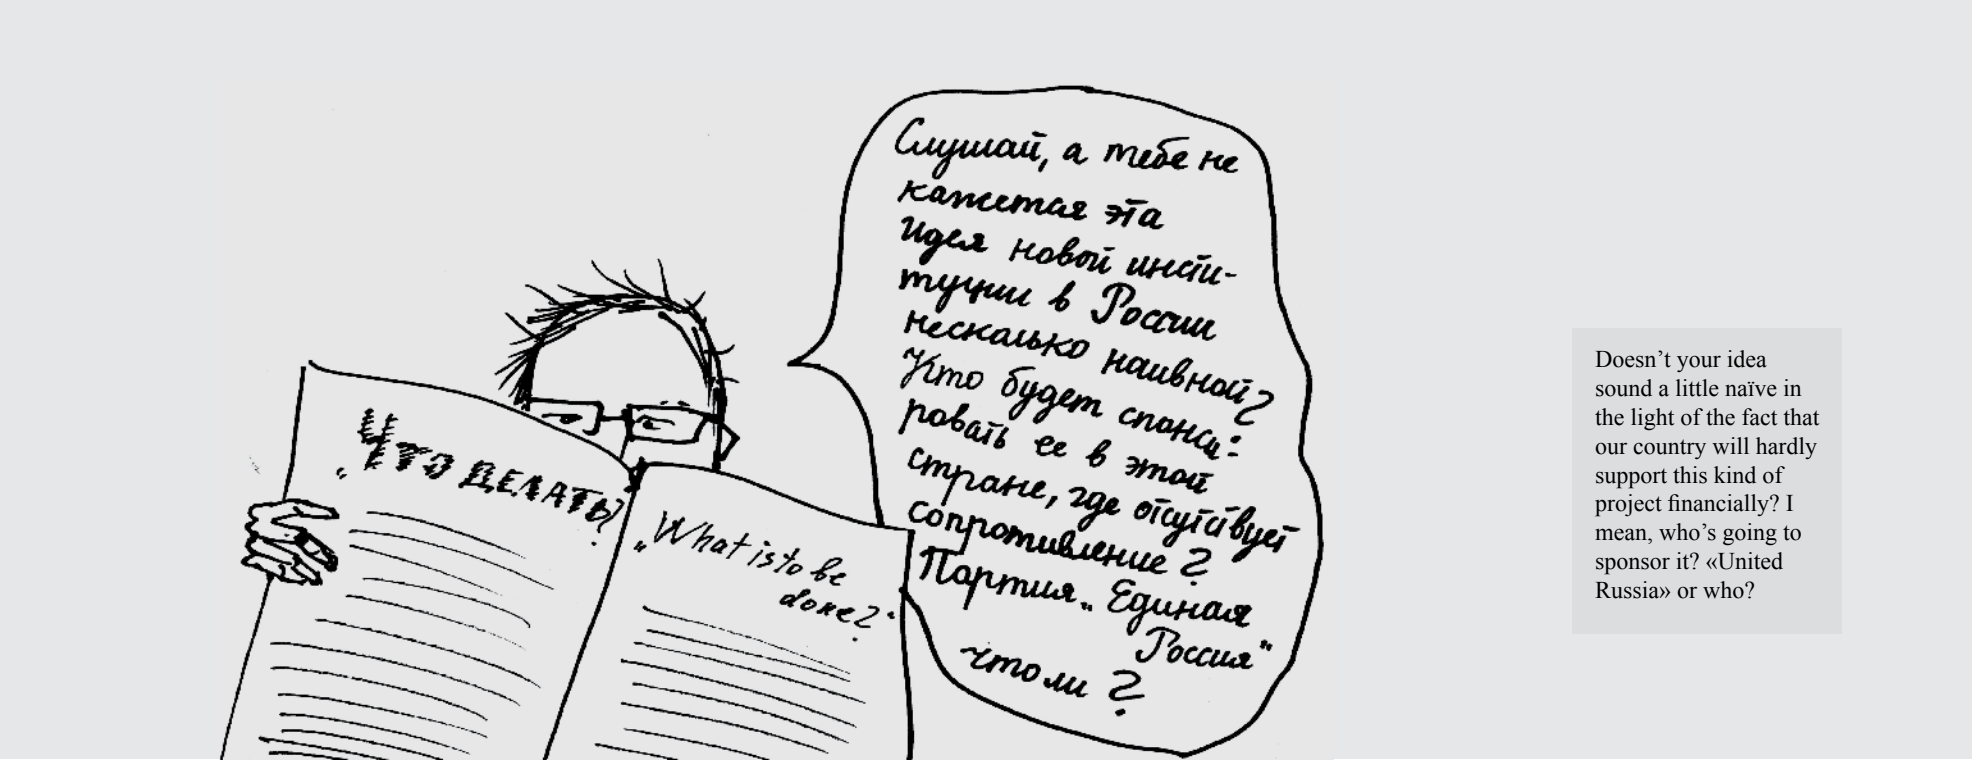 „Что делать?
„What is to be
done?“
Слушай, а тебе не
кажется эта
идея новой инсти-
туции в России
несколько наивной?
Кто будет спонси-
ровать ее в этой
стране, где отсутствует
сопротивление?
Партия „Единая
Россия“
что ли?
Doesn’t your idea
sound a little naïve in
the light of the fact that
our country will hardly
support this kind of
project financially? I
mean, who’s going to
sponsor it? «United
Russia» or who?